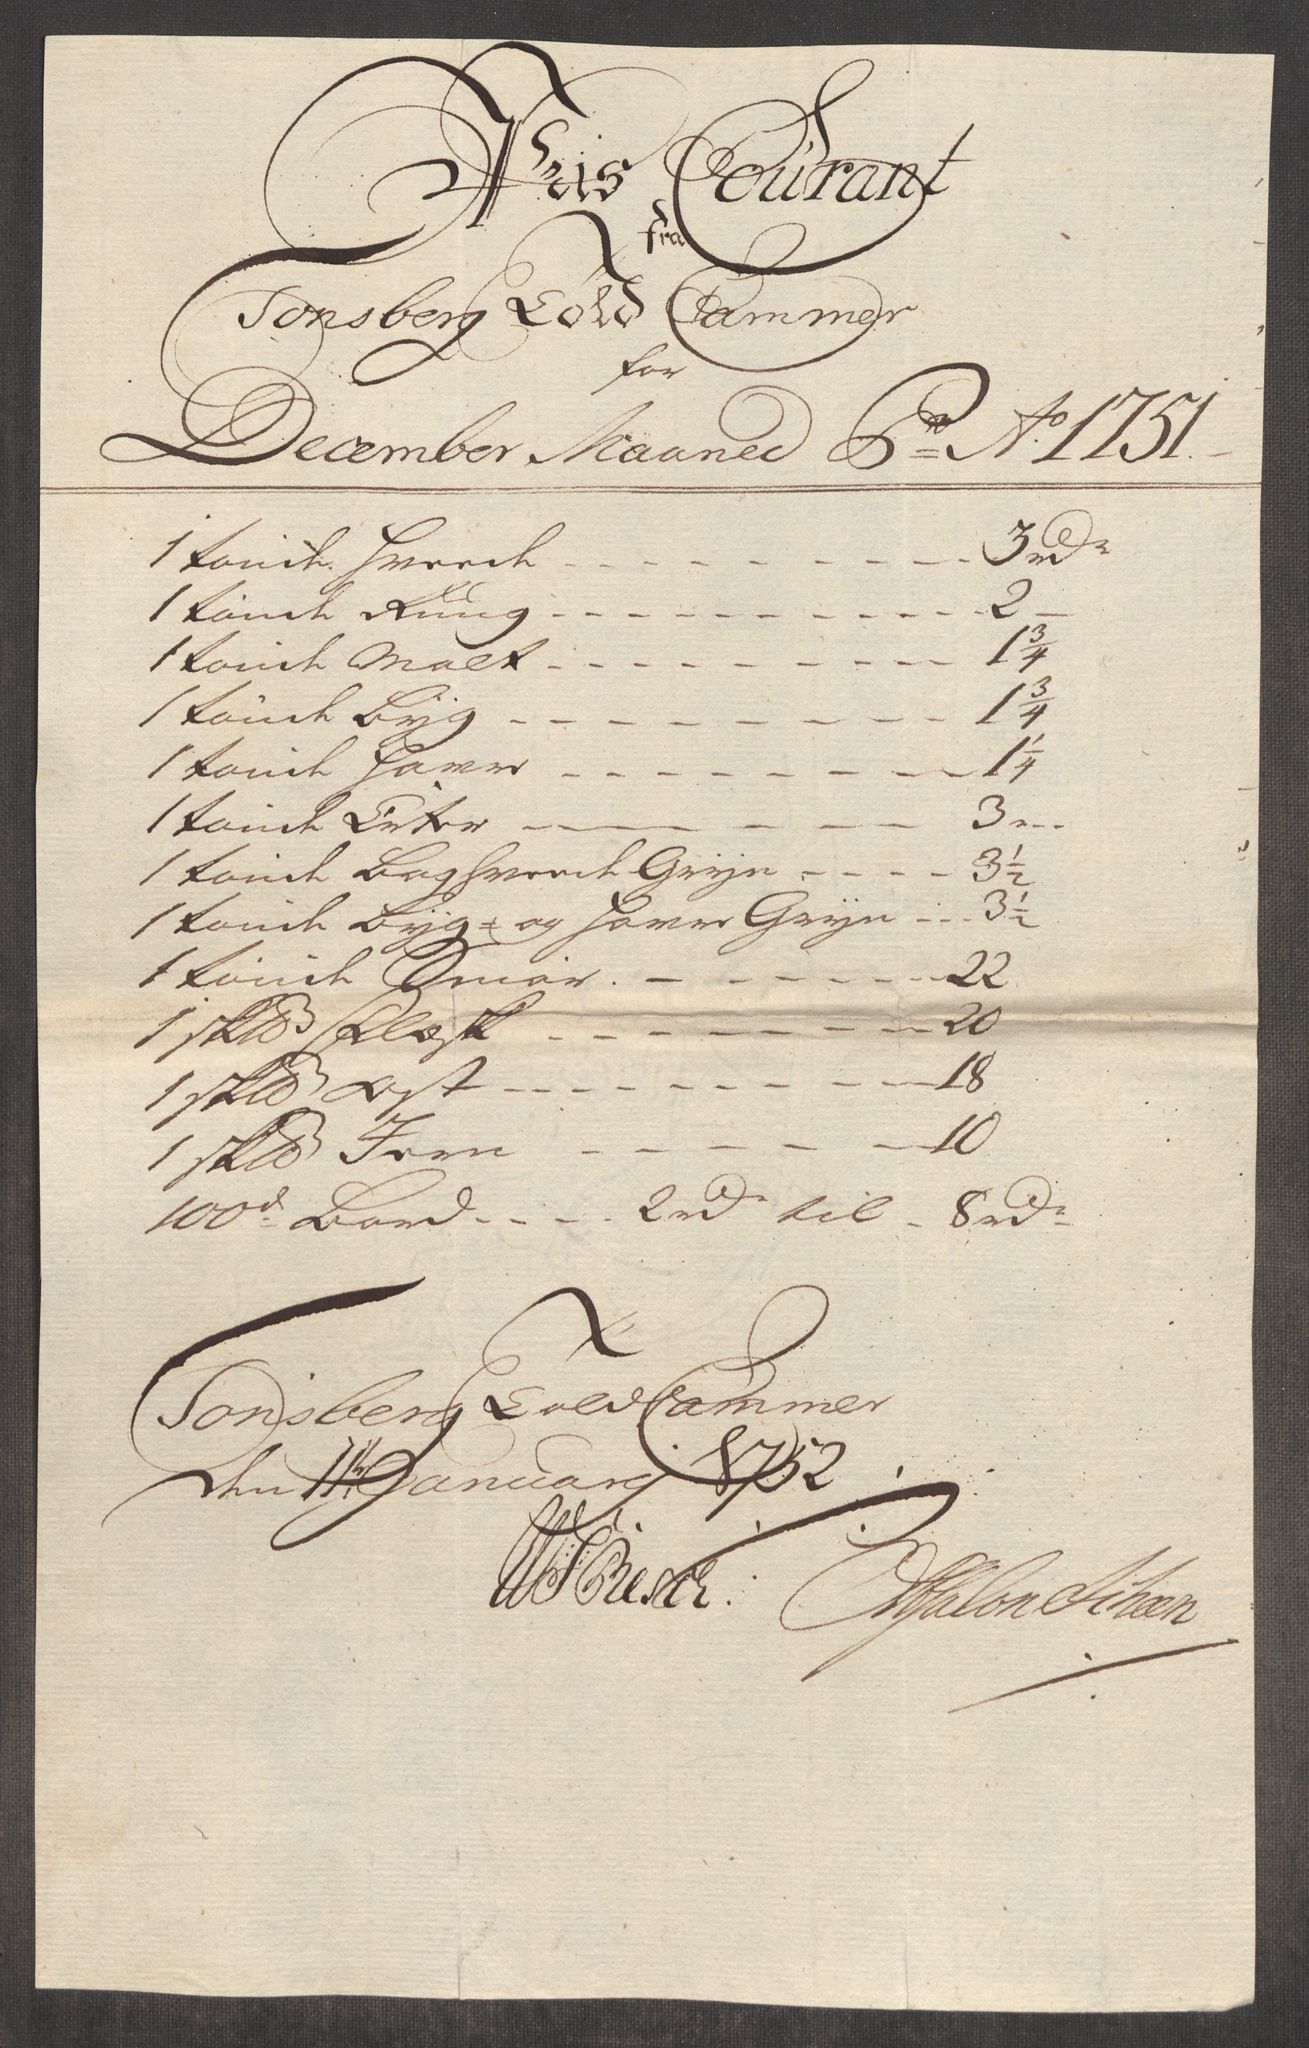 Priis Courant
fra
Tonsberg Told Cammer
for
December Maaned P. Ao. 1751.
1 tönde Hveede 3 rdr
1 tönde Rüug 2
1 tönde Malt 1 3/4
1 tönde Byg 1 3/4
1 tönde Havre 1 1/4
1 tönde Erter 3
1 tönde Boghveede Gryn 3 1/2
1 tönde Byg= og Havre Gryn 3 1/2
1 tönde Smör 22
1 sk℔ Flæsk 20
1 sk℔ Ost 18
1 sk℔ Jern 10
100d. Bord 2 rdr til 8 rdr
Tonsberg Told Cammer
den Januarj 1752